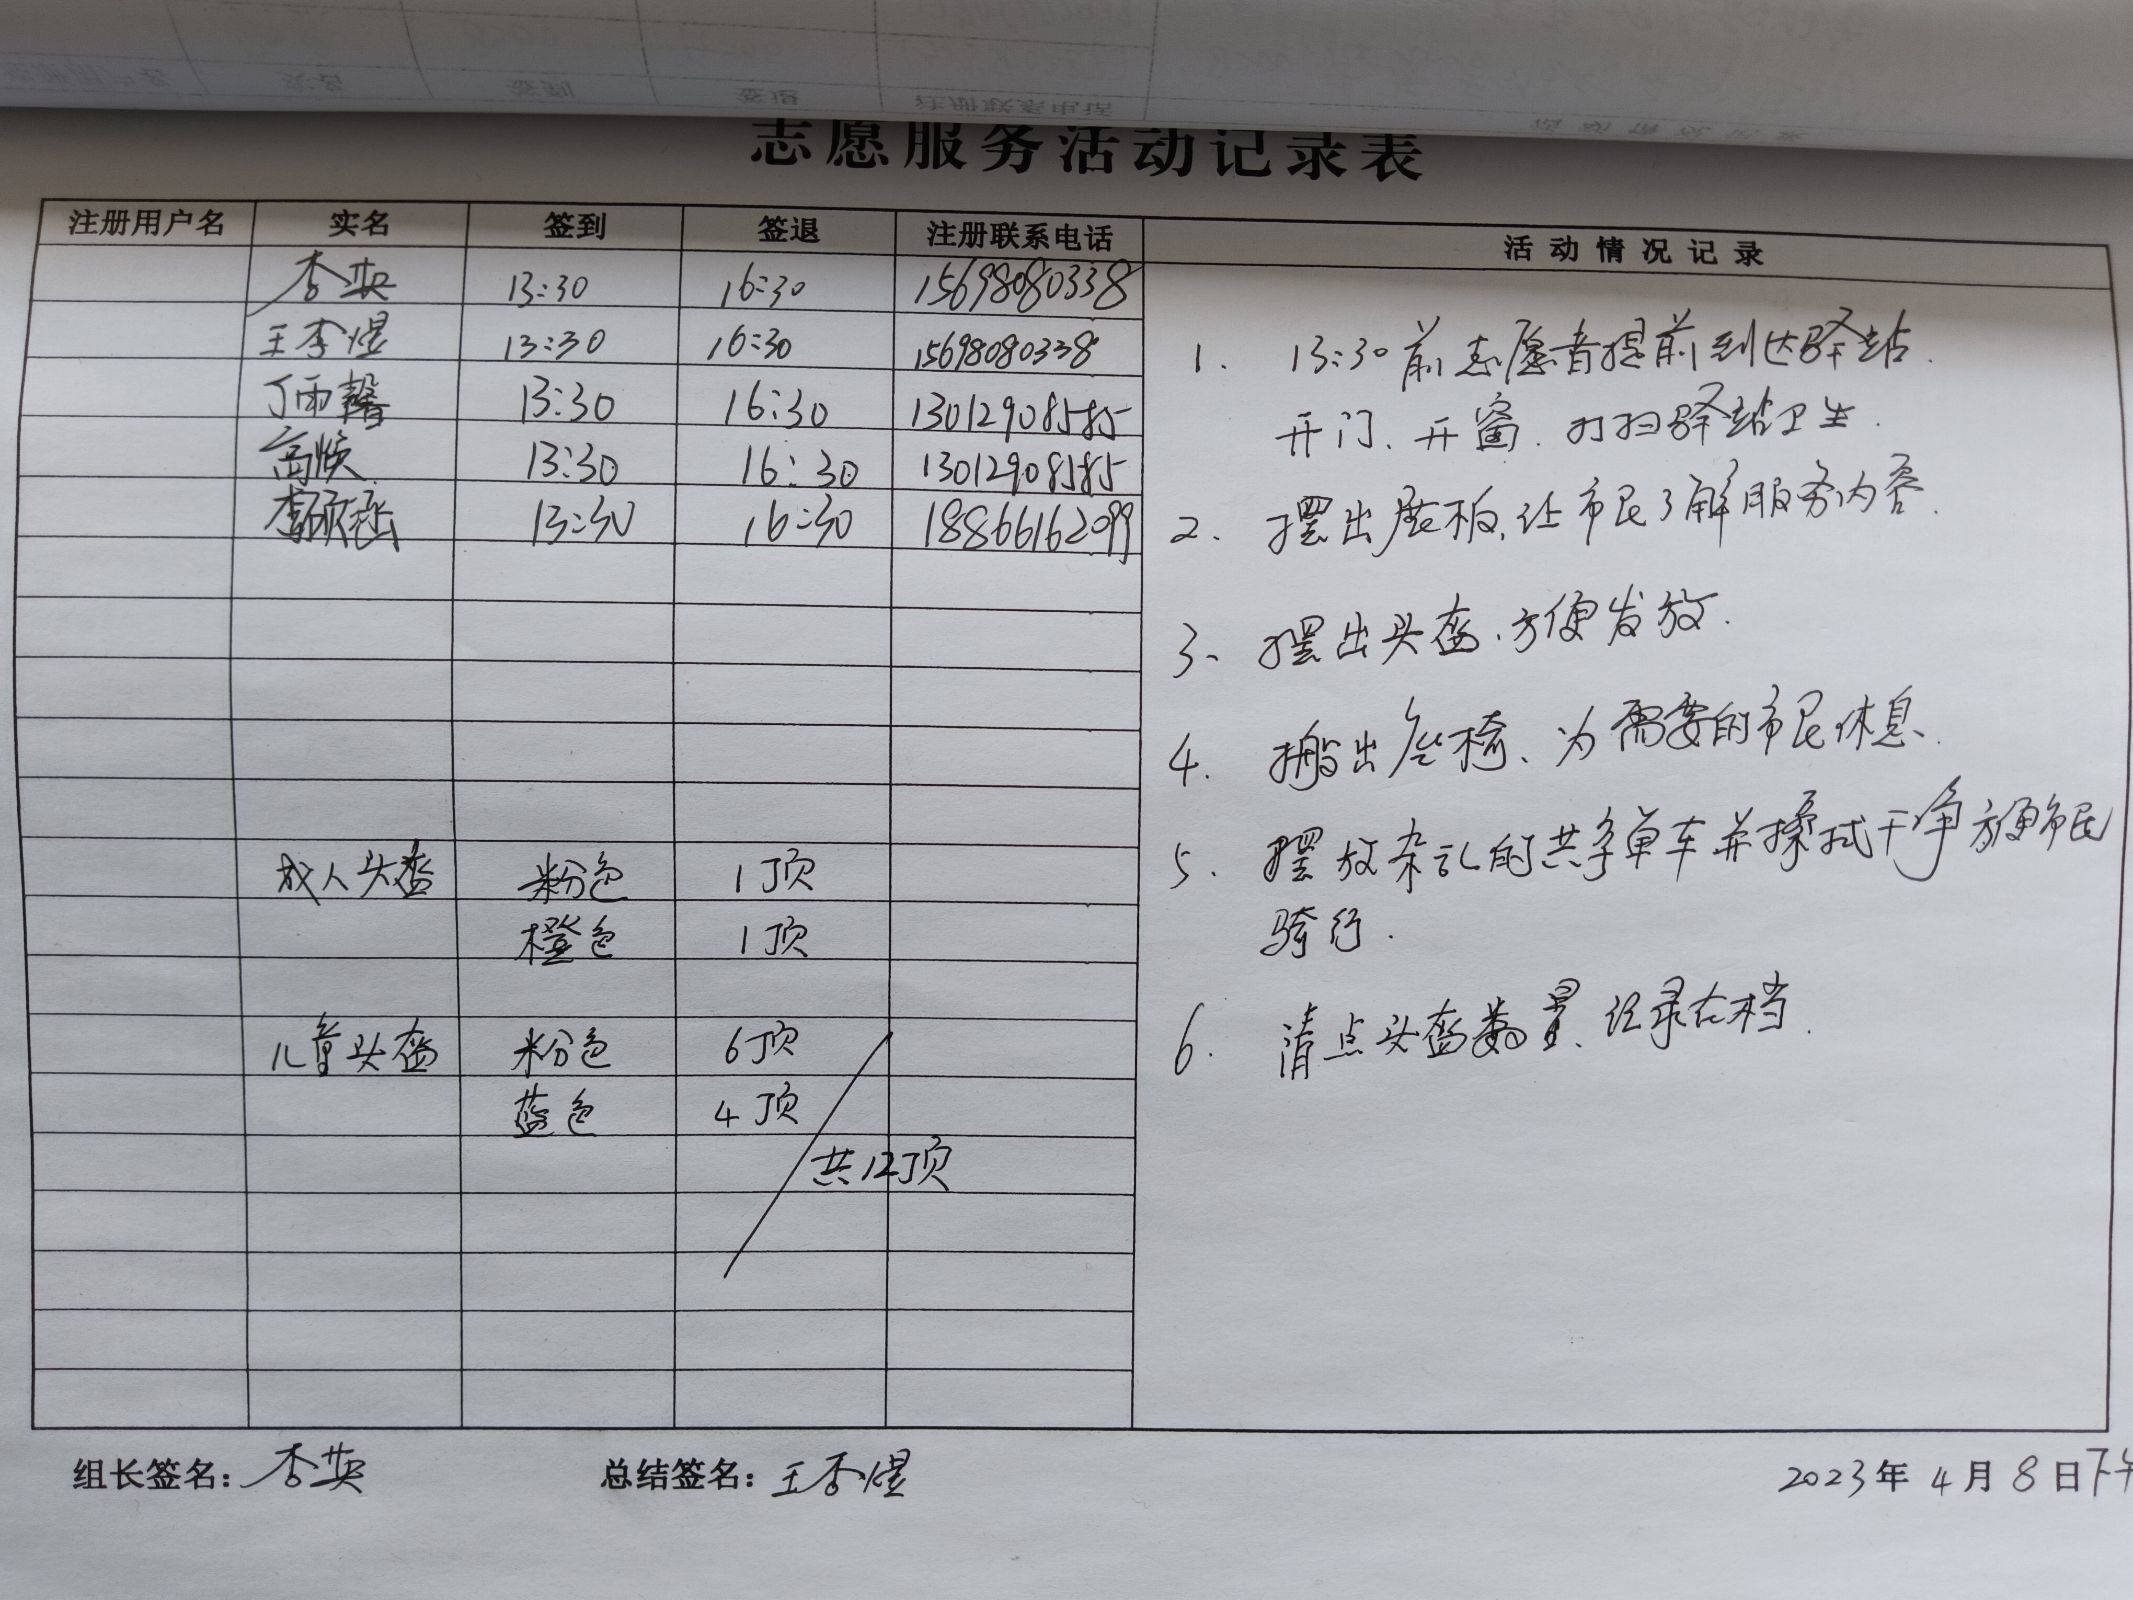 志愿服务活动记录表
注册用户名 实名 签到 签退 注册联系电话 活动情况记录
李英 13:30 16:30 15698080338
王李煜 13:30 16:30 15698080338
丁雨馨 13:30 16:30 13012908585
高 13:30 16:30 13012908585
李硕 13:30 16:30 18866162099
成人头盔 粉色 1顶
橙色 1顶
儿童头盔 粉色 6顶
蓝色 4顶
共12顶
1. 13:30前志愿者提前到达驿站.
开门、开窗.打扫驿站卫生.
2. 摆出展板,让市民了解服务内容.
3、摆出头盔.方便发放.
4. 搬出座椅、为需要的市民休息、
5. 摆放杂乱的共享单车并擦拭干净方便市民
骑行.
6. 清点头盔数量、记录在档.
组长签名:李英 总结签名:王李煜 2023年4月8日下午